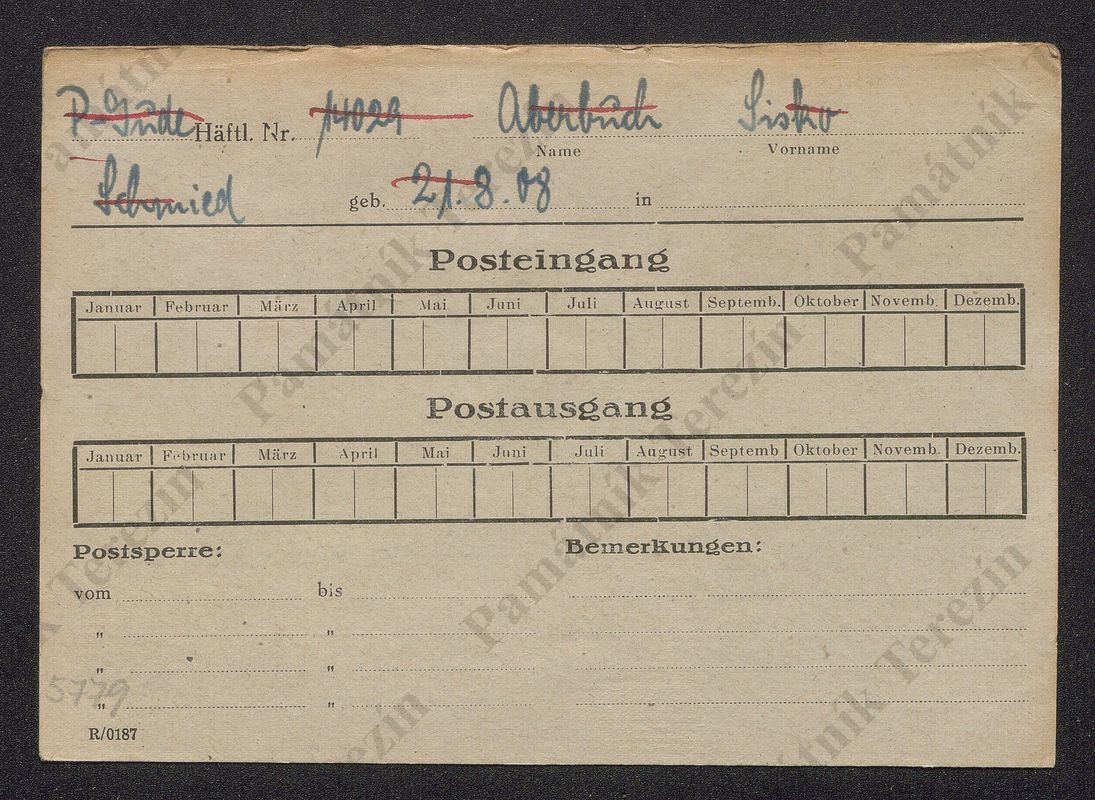 P-Jude Häftl. Nr. 14029 Aberbuch Sisko
Name Vorname
Schmied geb. 21.8.08 in
Posteingang
Januar Februar März April Mai Juni Juli August Septemb. Oktober Novemb. Dezemb.
Postausgang
Januar Februar März April Mai Juni Juli August Septemb Oktober Novemb. Dezemb.
Postsperre: Bemerkungen:
vom bis
„ „
„ „
„ „
5779
R/0187
Památník Terezín